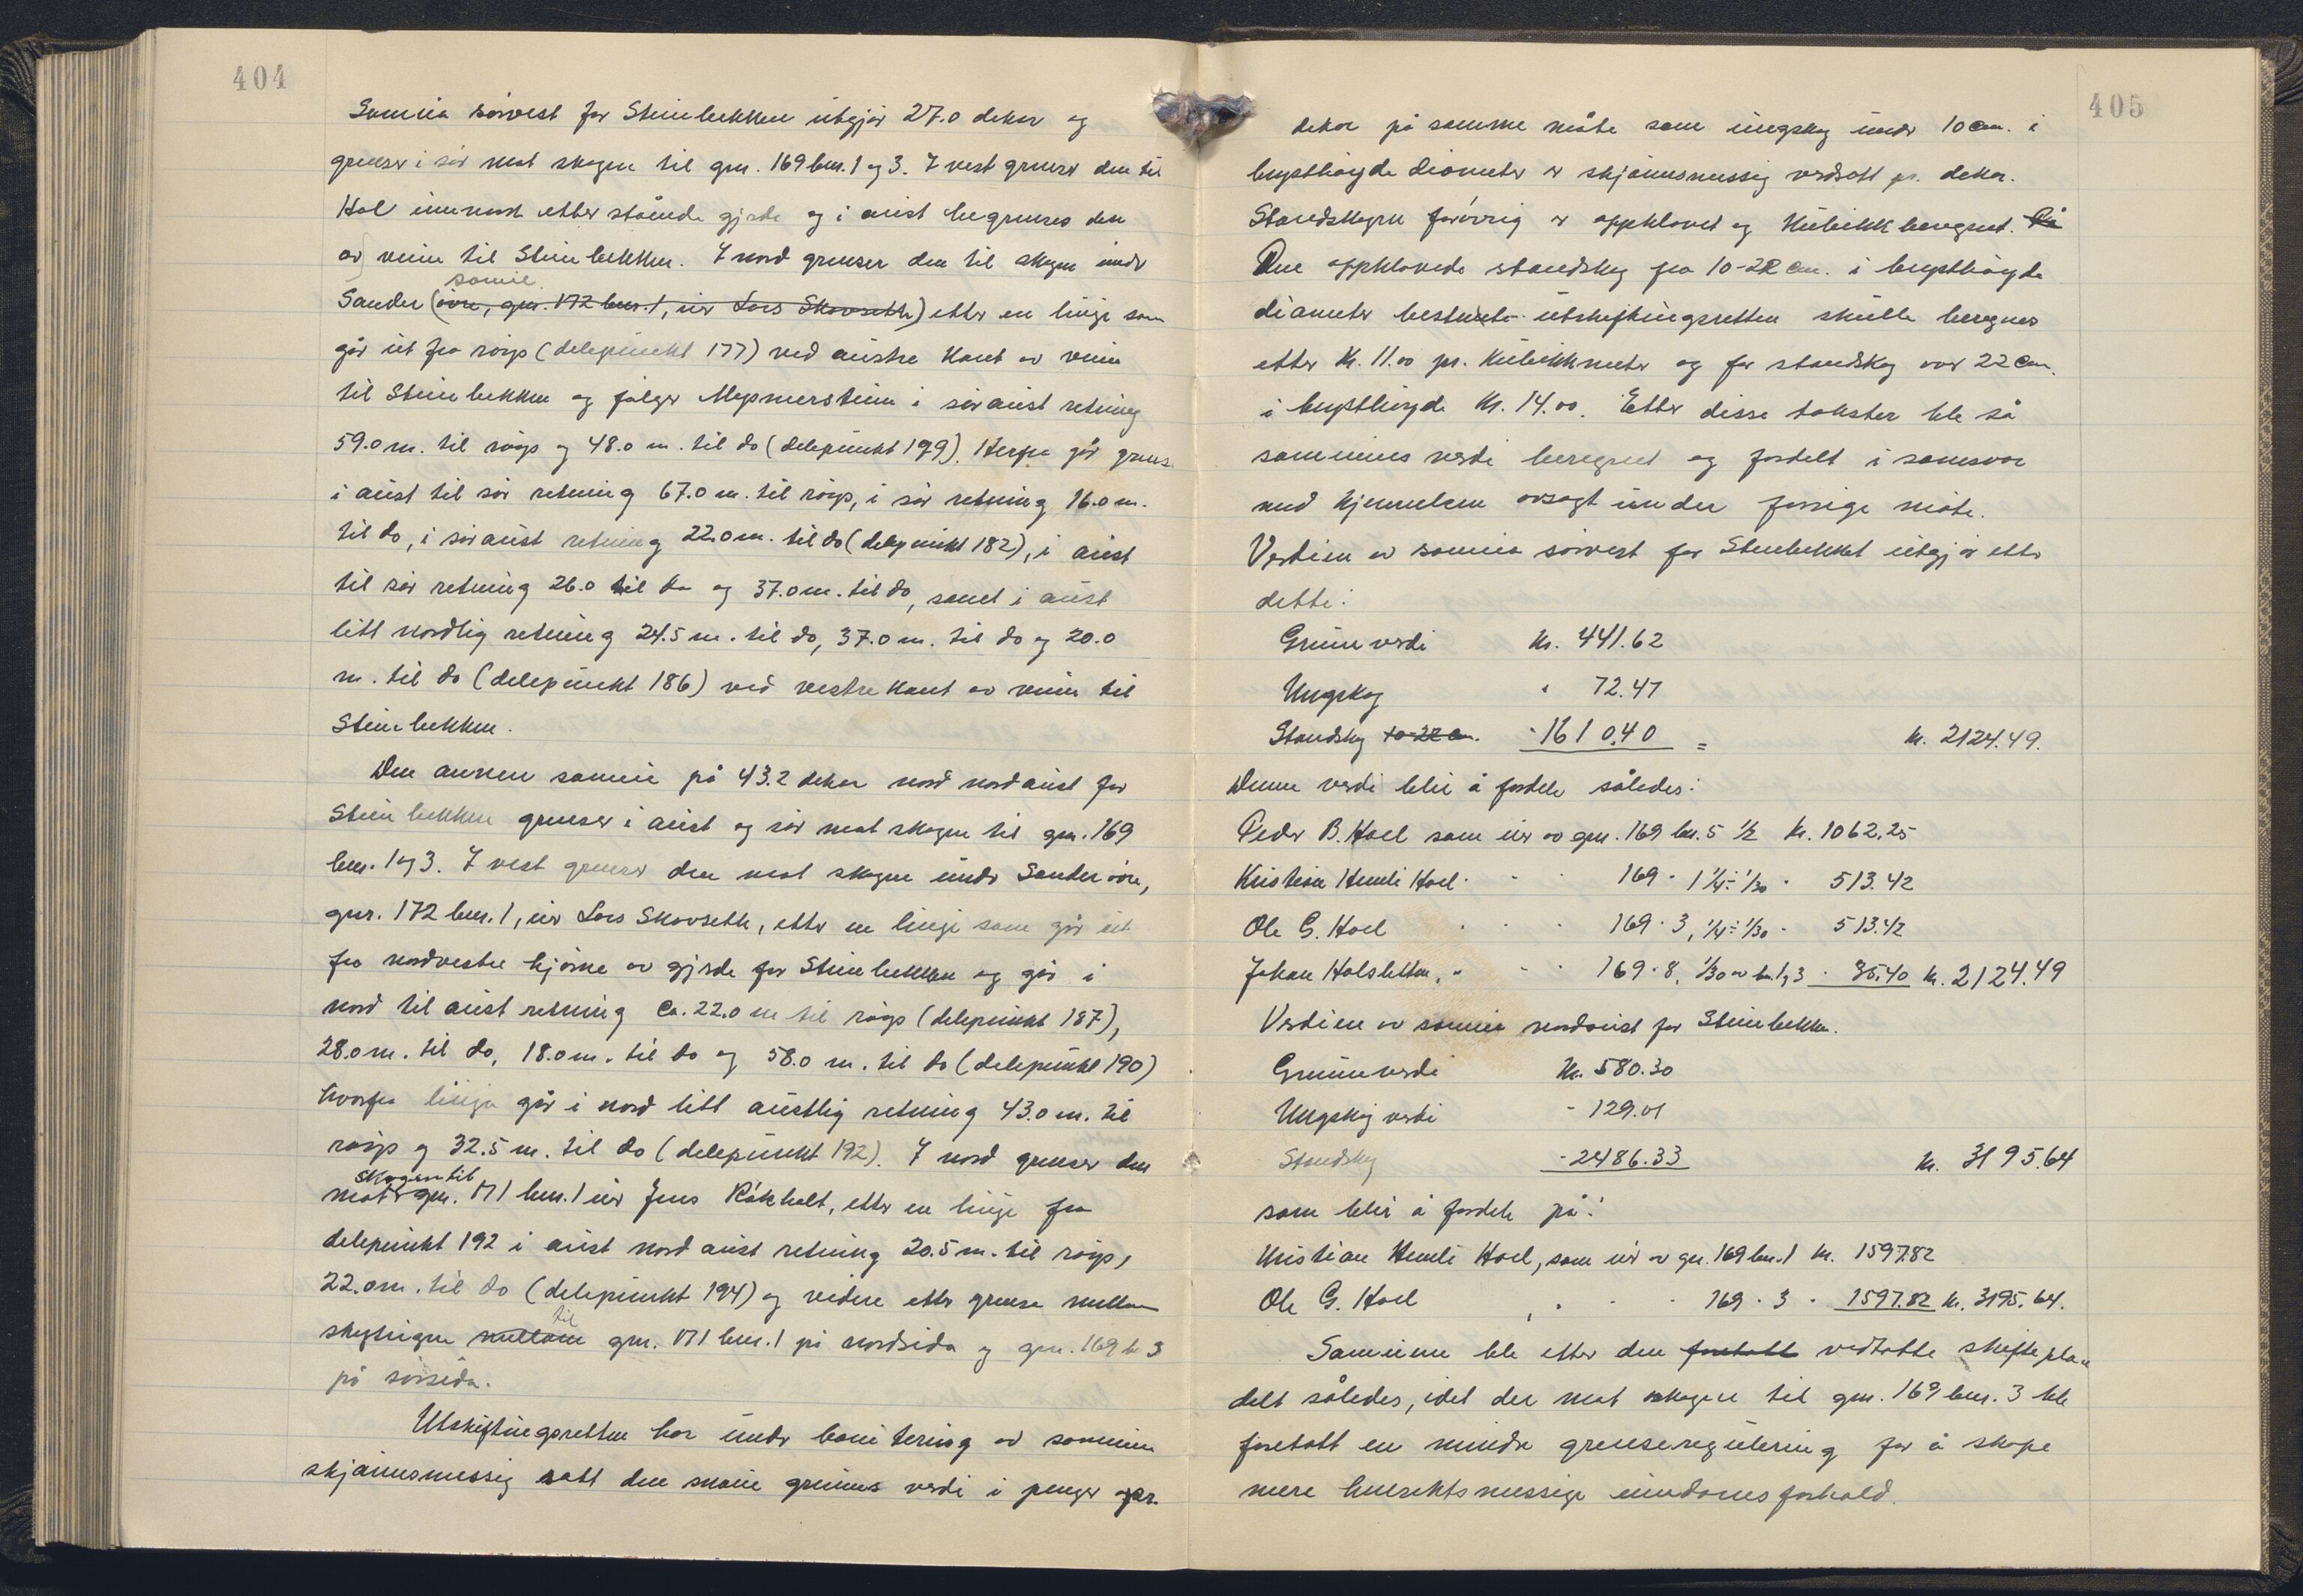 404
Sameia sørvest for Steinbekken utgjør 27.0 dekar og
grenser i sør mot skogen til gnr. 169 bnr. 1 og 3. I vest grenser den til
Hol innmark etter stående gjerde og i aust begrenses den
av veien til Steinbekken. I nord grenser den til skogen under
sameie
Sander (øvre, gnr. 172 bnr. 1, eier Lars Skovseth) etter en linje som
går ut fra røys (delepunkt 177) ved austre kant av veien
til Steinbekken og følger Mepmerstien i søraust retning
59.0 m. til røys og 48.0 m. til do (delepunkt 179). Herfra går grensa
i aust til sør retning 67.0 m. til røys, i sør retning 16.0 m.
til do, i søraust retning 22.0 m. til do (delepunkt 182), i aust
til sør retning 26.0 til do og 37.0 m. til do, samt i aust
litt nordlig retning 24.5 m. til do, 37.0 m. til do og 20.0
m. til do (delepunkt 186) ved vestre kant av veien til
Steinbekken.
Den annen sameie på 43.2 dekar nord nordaust for
Steinbekken grenser i aust og sør mot skogen til gnr. 169
bnr. 1 og 3. I vest grenser den mot skogen under Sander øvre,
gnr. 172 bnr. 1, eier Lars Skovseth, etter en linje som går ut
fra nordvestre hjørne av gjerde for Steinbekken og går i
nord til aust retning ca. 22.0 m til røys (delepunkt 187),
28.0 m. til do, 18.0 m. til do og 58.0 m. til do (delepunkt 190)
hvorfra linja går i nord litt austlig retning 43.0 m. til
røys og 32.5 m. til do (delepunkt 192). I nord grenser den
skogen til
mot gnr. 171 bnr. 1 eier Jens Råkholt, etter en linje fra
delepunkt 192 i aust nordaust retning 20.5 m. til røys,
22.0 m. til do (delepunkt 194) og videre etter grensa mellom
til
skogteigen mellom gnr. 171 bnr. 1 på nordsida og gnr. 169 b 3
på sørsida.
Utskiftingsretten har under bonitering av sameien
skjønnsmessig satt den snaue grunns verdi i penger pr.
405
dekar på samme måte som ungskog under 10 cm. i
brysthøyde diameter er skjønnsmessig verdsatt pr. dekar.
Standskogen forøvrig er oppklavet og kubikkberegnet. På
Den oppklavede standskog fra 10-22 cm. i brysthøyde
diameter bestemte utskiftingsretten skulle beregnes
etter kr. 11.00 pr. kubikkmeter og for standskog over 22 cm.
i brysthøyde kr. 14.00. Etter disse takster ble så
sameiens verdi beregnet og fordelt i samsvar
med kjennelsen avsagt under forrige møte.
Verdien av sameia sørvest for Stenbekket utgjør etter
dette:
Grunnverdi kr. 441.62
Ungskog " 72.47
Standskog 10-22 cm. " 1610.40 = kr. 2124.49.
Denne verdi blir å fordele således:
Peder B. Hoel som eier av gnr. 169 bnr. 5 1/2 kr. 1062.25
Kristian Hemli Hoel " " " 169 " 1 1/4 ÷ 1/30 " 513.42
Ole G. Hoel " " " 169 " 3, 1/4 ÷ 1/30 " 513.42
Johan Holsletten, " " " 169 " 8, 1/30 av bnr. 1 og 3 " 35.40 kr. 2124.49
Verdien av sameia nordaust for Steinbekken.
Grunnverdi kr. 580.30
Ungskog verdi " 129.01
Standskog " 2486.33 kr. 3195.64
som blir å fordele på:
Kristian Hemli Hoel, som eier av gnr. 169 bnr. 1 kr. 1597.82
Ole G. Hoel , " " " 169 " 3 " 1597.82 kr. 3195.64.
Sameiene ble etter den foretatt vedtatte skifteplan
delt således, idet der mot skogen til gnr. 169 bnr. 3 ble
foretatt en mindre grenseregulering for å skape
mere hensiktsmessige eiendomsforhold.